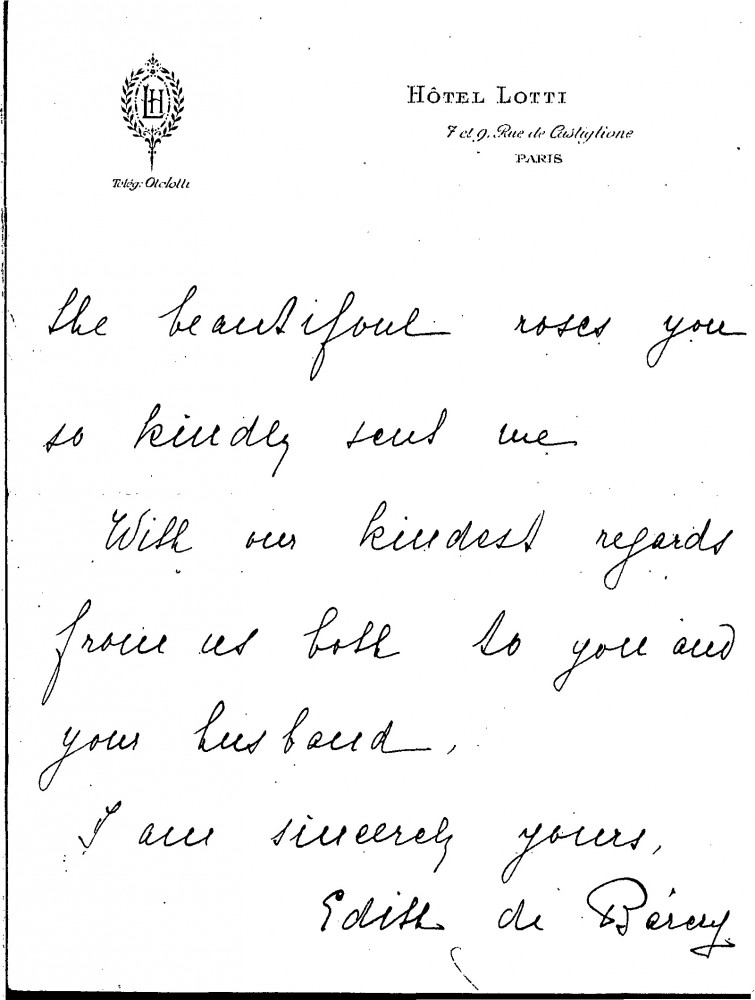 LH
HÔTEL LOTTI
7 et 9. Rue de Castiglione
PARIS
Télég: Otelotti
the beautifoul roses you
so kindly sent me
With our kindest regards
from us both to you and
your husband,
I am sincerely yours,
Edith de Bárczy